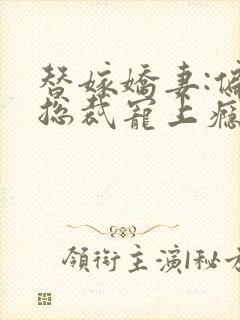 替嫁嬌妻:偏
總裁寵上癮
領銜主演|秘方